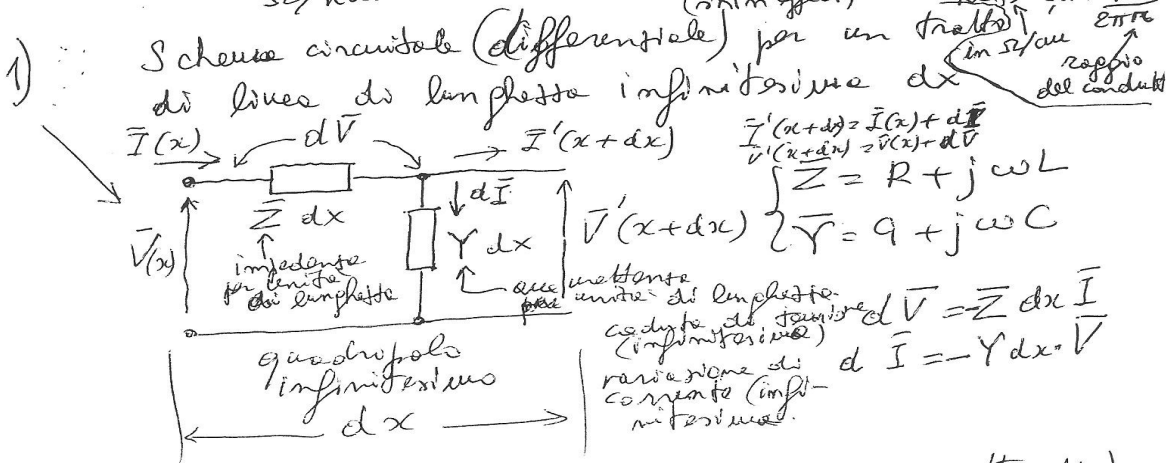 1) Schema circuitale (differenziale) per un tratto
di linea di lunghezza infinitesima dx
in Ω/cm
2πr₀
raggio
del condutt
Ī(x) dV̄ Ī'(x+dx)
Ī'(x+dx) = Ī(x) + dĪ
V̄'(x+dx) = V̄(x) + dV̄
Z̄ = R + jωL
Ȳ = G + jωC
V̄(x) Z̄ dx dĪ Y dx V̄'(x+dx)
impedenza
per unità
di lunghezza
ammettenza
per unità di lunghezza
caduta di tensione
(infinitesima)
dV̄ = -Z̄ dx Ī
variazione di
corrente (infi-
nitesima.
dĪ = -Y dx · V̄
quadripolo
infinitesimo
dx